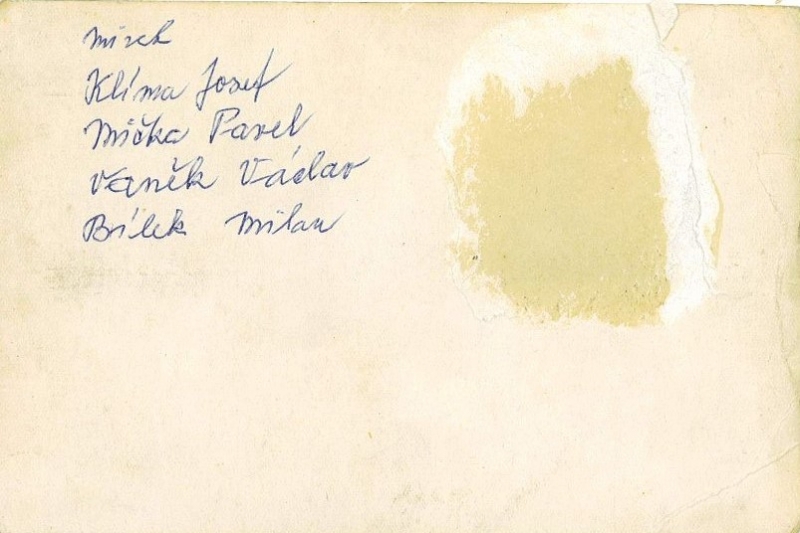 Mirek
Klíma Josef
Mička Pavel
Vaněk Václav
Bílek Milan